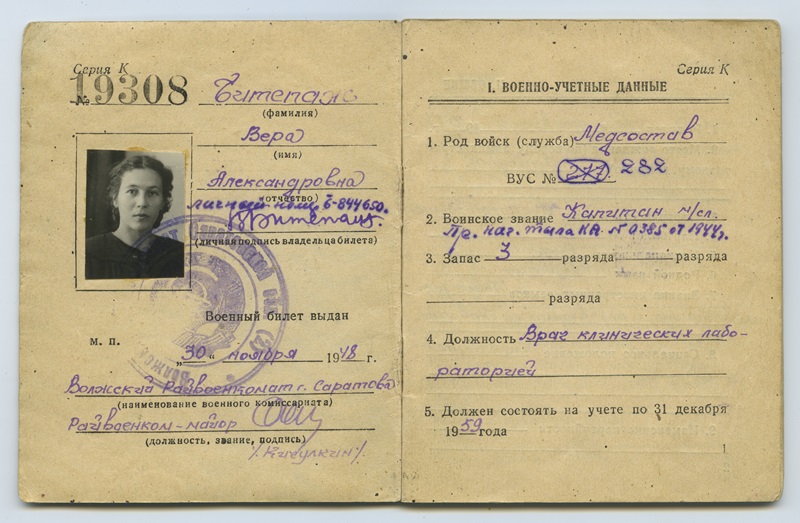 Серия К
№ 19308
(фамилия)
Вера
(имя)
Александровна
(отчество)
личный ном. Б-844650.
(личная подпись владельца билета)
Военный билет выдан
м. п.
„30“ ноября 1948 г.
Волжский Райвоенкомат г. Саратова
(наименование военного комиссариата)
Райвоенком-майор
(должность, звание, подпись)
Серия К
I. ВОЕННО-УЧЕТНЫЕ ДАННЫЕ
1. Род войск (служба) Медсостав
ВУС № 282
2. Воинское звание Капитан м/сл.
Пр. нач. тыла КА № 0385 от 1944г.
3. Запас 3 разряда разряда
разряда
4. Должность Врач клинических лабо-
раторией
5. Должен состоять на учете по 31 декабря
1959 года
1